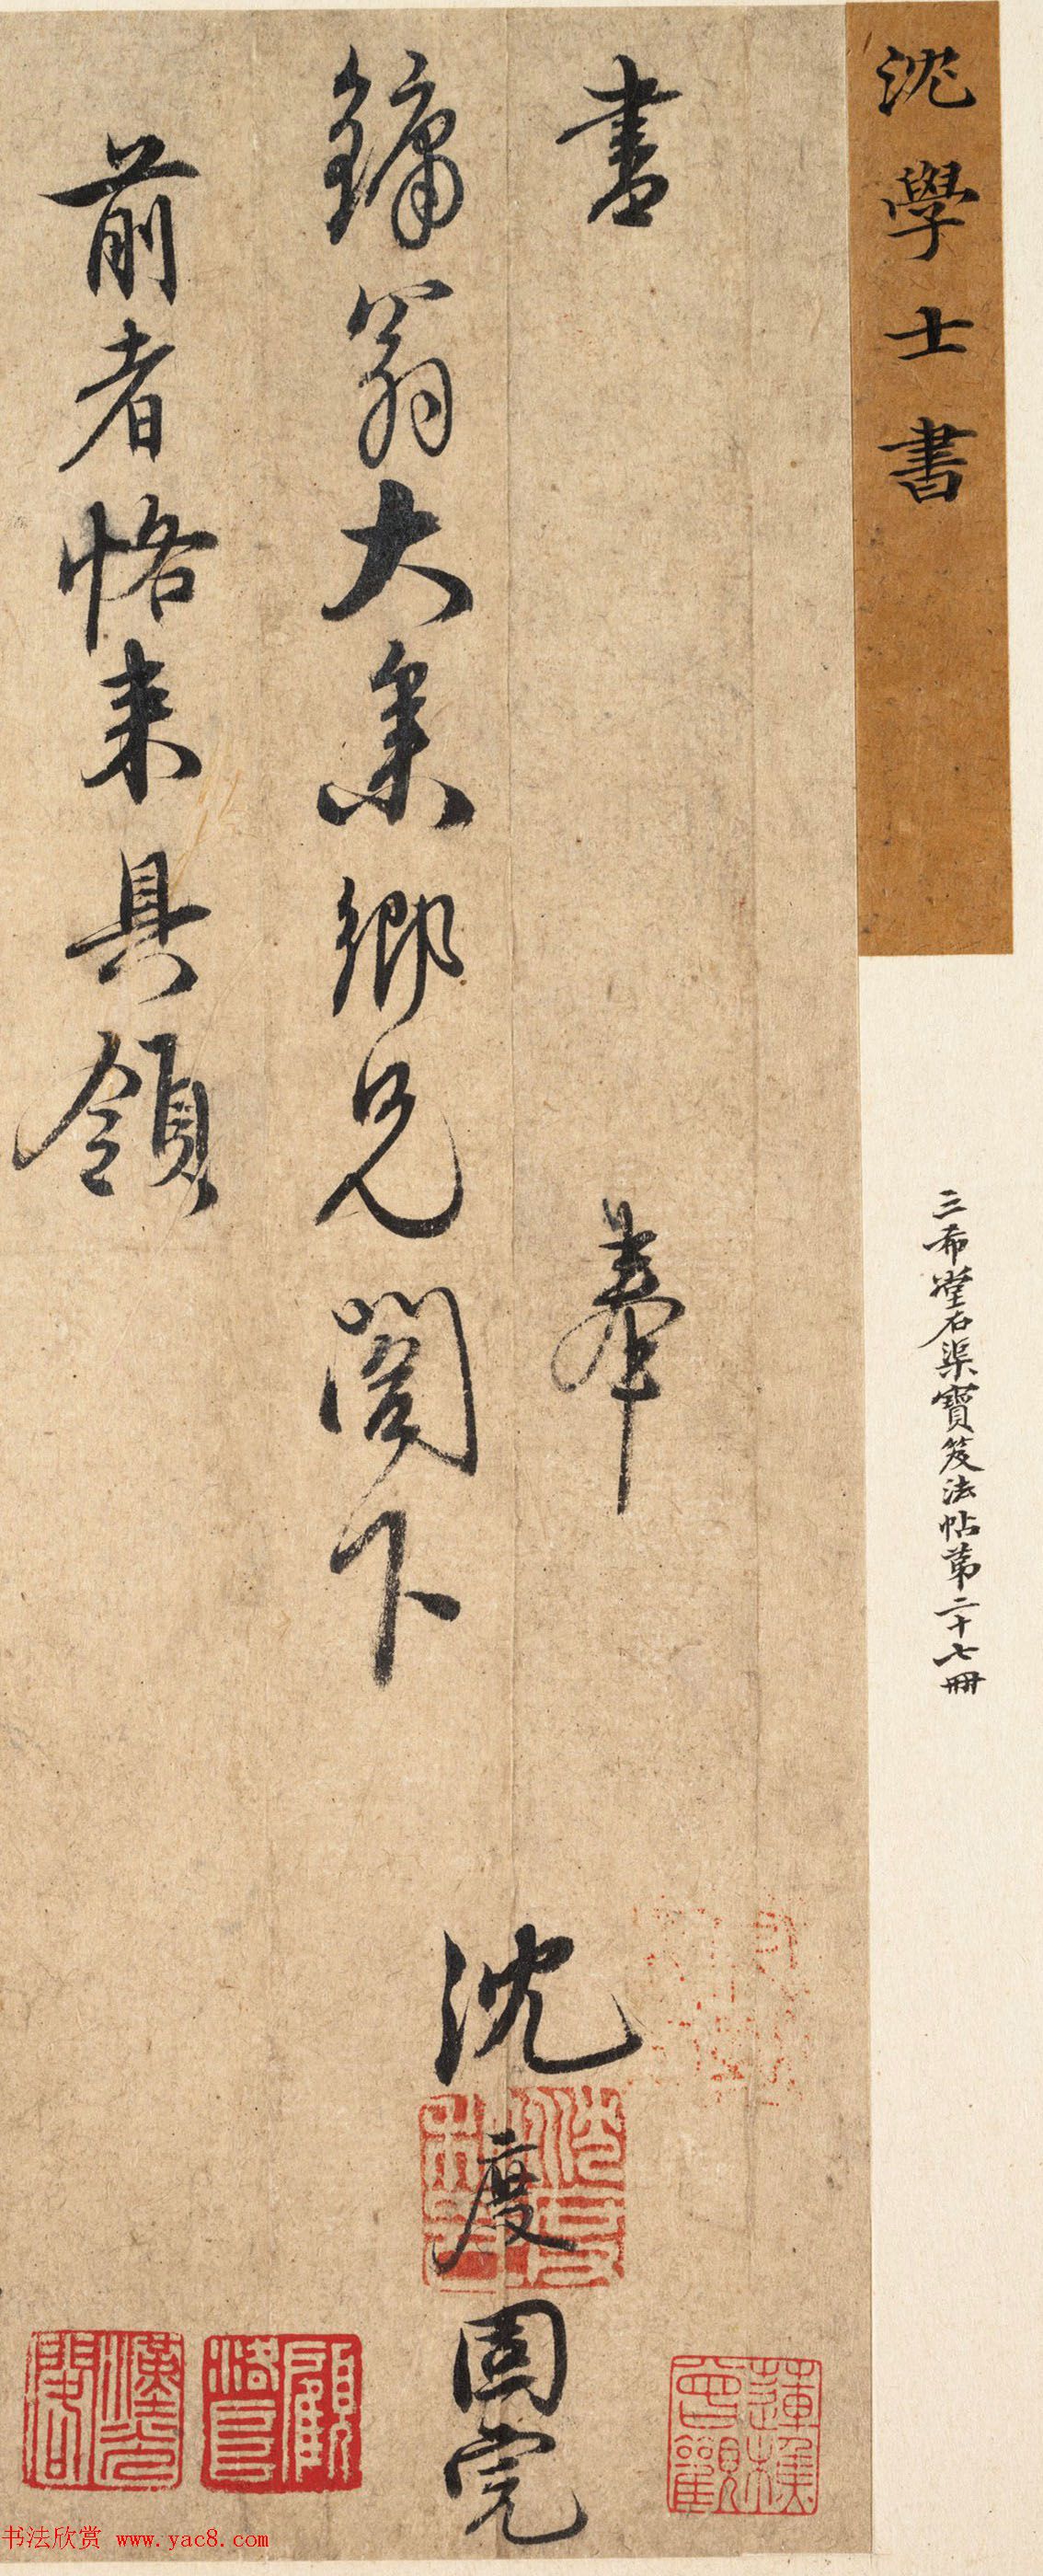 沈學士書
三希堂石渠寶笈法帖第二十七冊
書 奉
鏞翁大參鄉兄閣下
沈度固完
前者恪來具領
书法欣赏 www.yac8.com